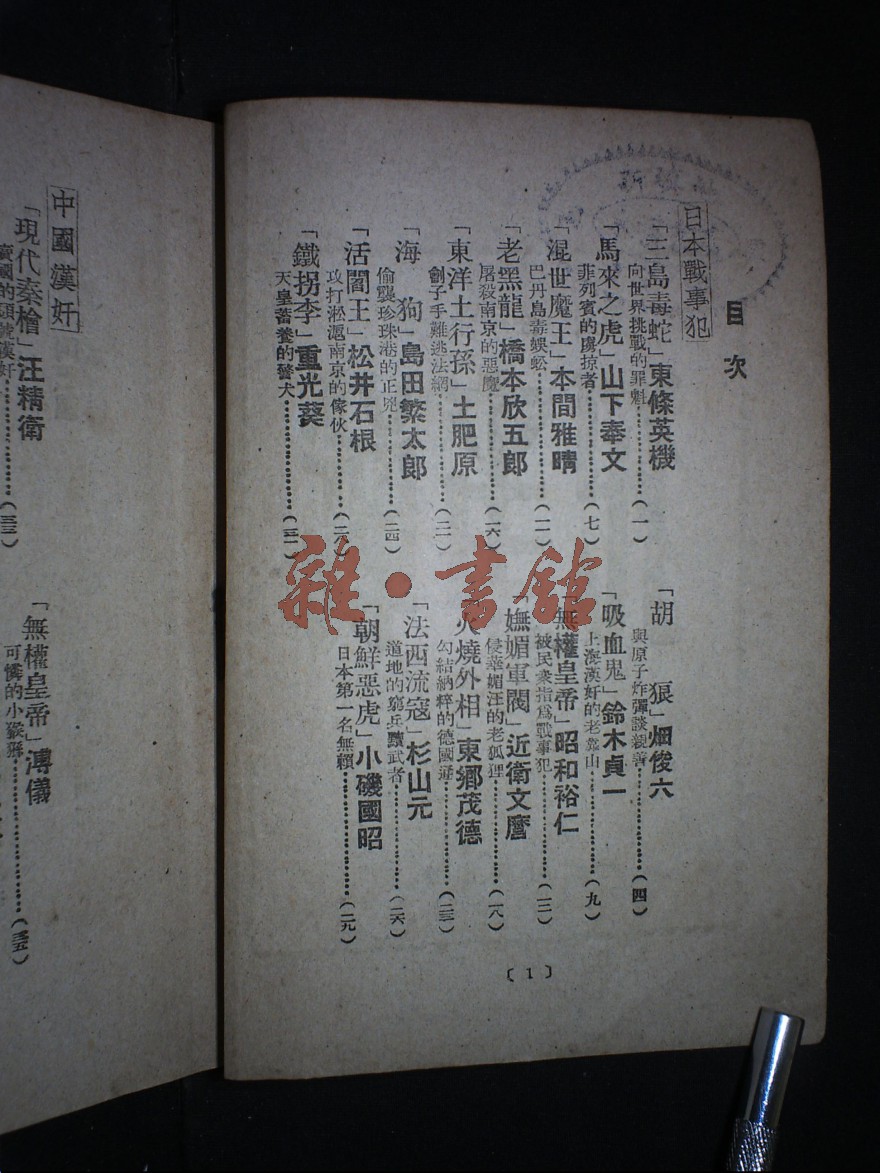 目次
日本戰事犯
「三島毒蛇」東條英機
向世界挑戰的罪魁……(一)
「胡狼」畑俊六
與原子炸彈談親善……(四)
「馬來之虎」山下奉文
菲列賓的虜掠者……(七)
「吸血鬼」鈴木貞一
上海漢奸的老靠山……(九)
「混世魔王」本間雅晴
巴丹島毒蜈蚣……(一一)
「無權皇帝」昭和裕仁
被民衆指爲戰事犯……(一三)
「老黑龍」橋本欣五郎
屠殺南京的惡魔……(一六)
「嫵媚軍閥」近衛文麿
侵華媚汪的老狐狸……(一八)
「東洋土行孫」土肥原
劊子手難逃法網……(二一)
「火燒外相」東鄉茂德
勾結納粹的德國通……(二三)
「海狗」島田繁太郎
偷襲珍珠港的正兇……(二四)
「法西流寇」杉山元
道地的窮兵黷武者……(二六)
「活閻王」松井石根
攻打淞滬南京的傢伙……
「朝鮮惡虎」小磯國昭
日本第一名無賴……(二九)
「鐵拐李」重光葵
天皇蓄養的警犬……
(1)
中國漢奸
「現代秦檜」汪精衛
賣國的頭號漢奸……(三三)
「無權皇帝」溥儀
可憐的小猴猻……(三五)
雜·書館